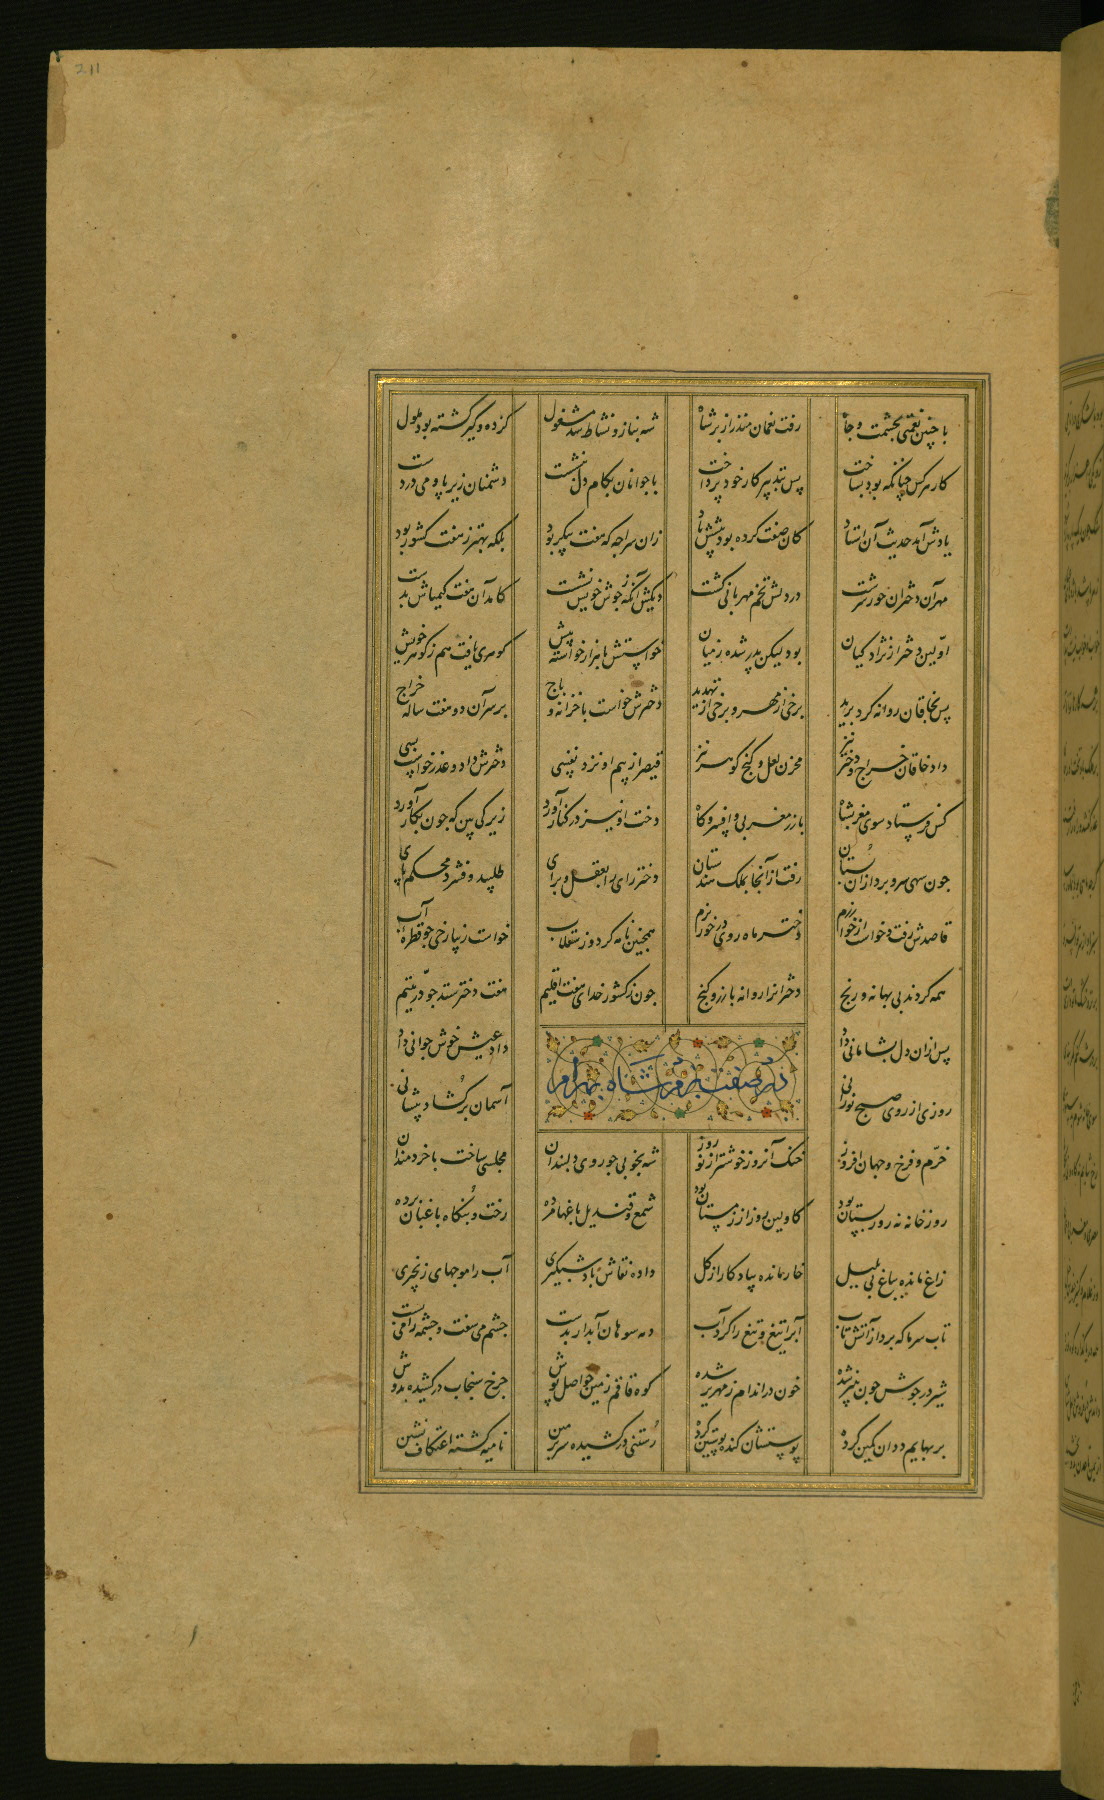 211
با چنین نعمتی بحشمت و جاه رفت نعمان منذر از بر شاه شه بناز و نشاط شد مشغول کز ده و گیر گشته بود ملول
کار هرکس چنانکه بود بساخت پس بتدبیر کار خود پرداخت با جوانان بکام دل بنشست دشمنان زیر پا و می در دست
یادش آمد حدیث آن استاد کان صفت کرده بود پیشش یاد زان سراچه که هفت پیکر بود بلکه بهتر ز هفت کشور بود
مهر آن دختران حور سرشت در دلش تخم مهربانی کشت دیگش آنگه ز جوش خویش نشست کامد آن هفت کیمیاش بدست
اولین دختر از نژاد کیان بود لیکن پدر شده ز میان خواستش با هزار خواسته پیش گوهری یافت هم ز گوهر خویش
پس بخاقان روانه کرد برید برخی از مهر و برخی از تهدید دخترش خواست با خزانه و باج بر سر آن دو هفت ساله خراج
داد خاقان خراج و دختر نیز مخزن لعل و گنج گوهر نیز قیصر از بیم او نزد نفسی دخترش داد و عذر خواست بسی
کس فرستاد سوی مغرب شاه با زر مغربی و افسر و گاه دخت او نیز در کنار آورد زیرکی بین که چون بکار آورد
چون سهی سرو برد از آن بستان رفت از آنجا بملک هندستان دختر رای را بعقل و برای طلبید و فشرد محکم پای
قاصدش رفت و خواست از خوارزم دختر ماه روی در خور بزم همچنین نامه کرد و ز سقلاب خواست زیبا رخی چو قطره آب
همه کردند بی بهانه و رنج دختران را روانه با زر و گنج چون ز کشور خدای هفت اقلیم هفت دختر ستد چو در یتیم
پس از آن دل بشادمانی داد داد عیش خوش جوانی داد
در صفت بزم شاه بهرام
روزی از روی صبح نورانی آسمان برگشاد پیشانی
خرم و فرخ و جهان افروز خنک آن روز خوشتر از نوروز شه بخوبی چو روی دلبندان مجلسی ساخت با خردمندان
روز خانه نه روز بستان بود کاولین روز از زمستان بود شمع و قندیل باغها مرده رخت و بنگاه باغبان برده
زاغ مانده بباغ بی بلبل خار مانده بیادگار از گل داده نقاش باد شبگیری آب را موجهای زنجیری
تاب سرما که برد از آتش تاب آب را تیغ و تیغ را کرد آب دمه سوهان آبدار بدست چشم می سفت و چشمه را می بست
شیر در جوش چون پنیر شده خون در اندام زمهریر شده کوه قاقم زمین حواصل پوش چرخ سنجاب در کشیده بدوش
بر بهایم ددان کمین کرده پوستشان کنده پوستین کرده رستنی در کشیده سر بزمین نامیه گشته اعتکاف نشین